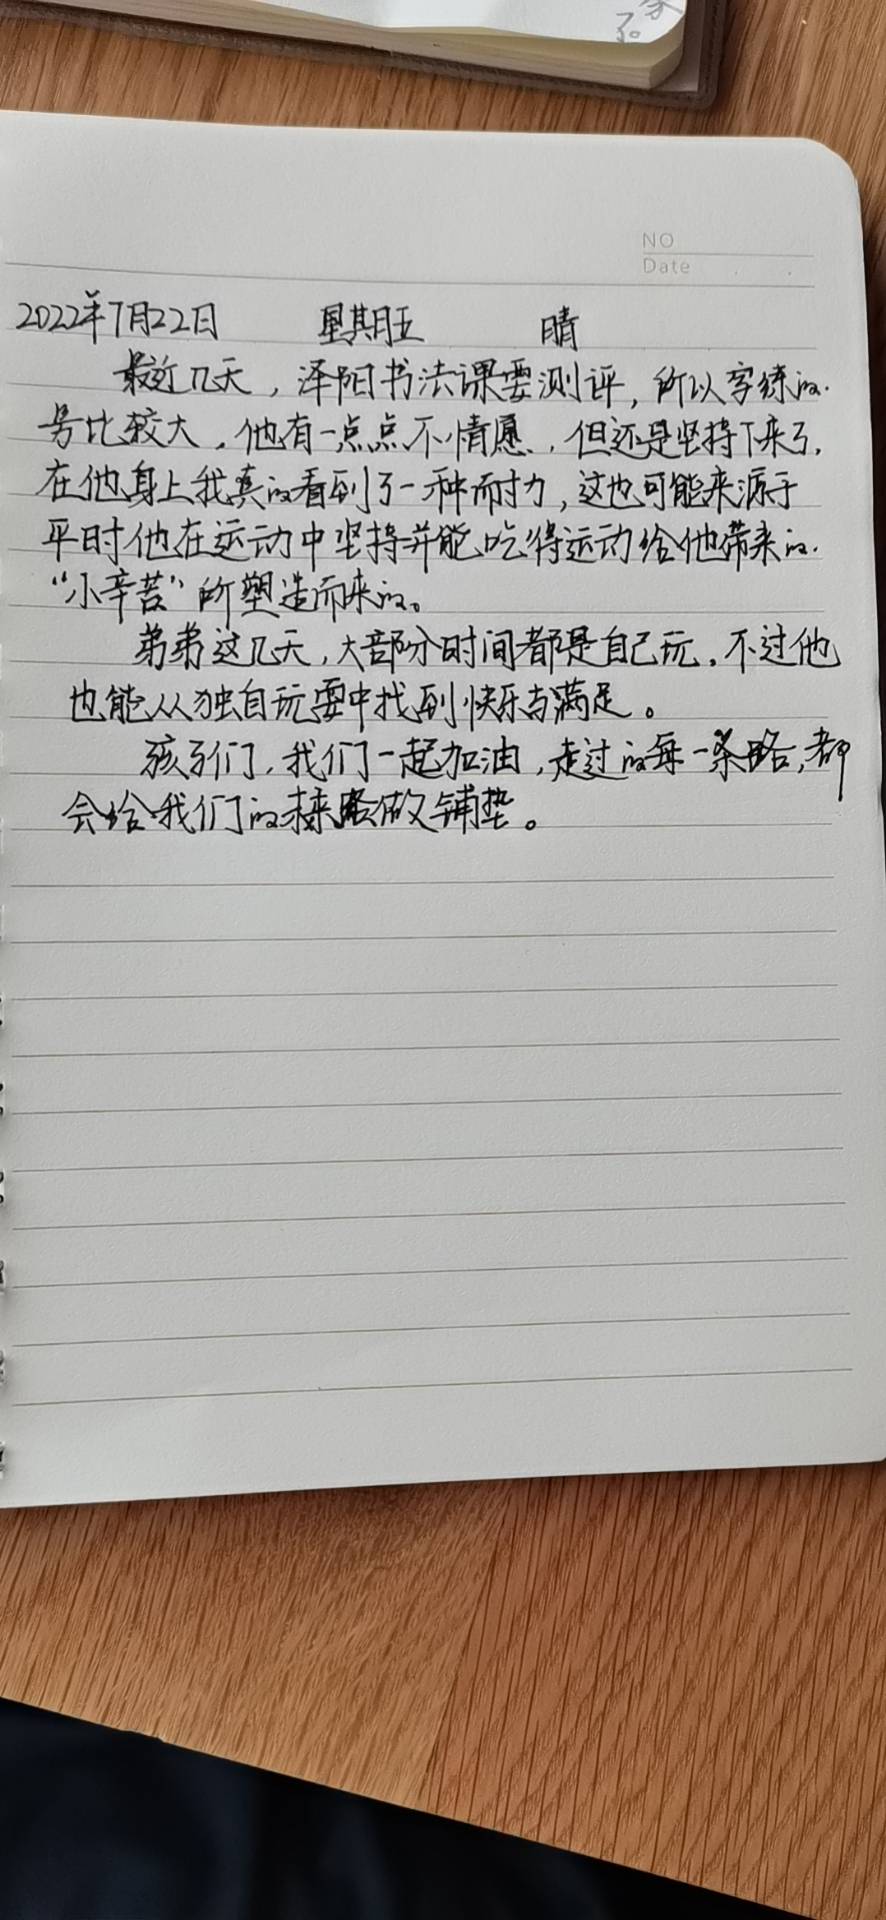 了。
NO
Date
2022年7月22日 星期五 晴
最近几天，泽阳书法课要测评，所以字练的
量比较大，他有一点点不情愿，但还是坚持下来了，
在他身上我真的看到了一种耐力，这也可能来源于
平时他在运动中坚持并能吃得运动给他带来的
“小辛苦”所塑造而来的。
弟弟这几天，大部分时间都是自己玩，不过他
也能从独自玩耍中找到快乐与满足。
孩子们，我们一起加油，走过的每一条路，都
会给我们的未来做铺垫。